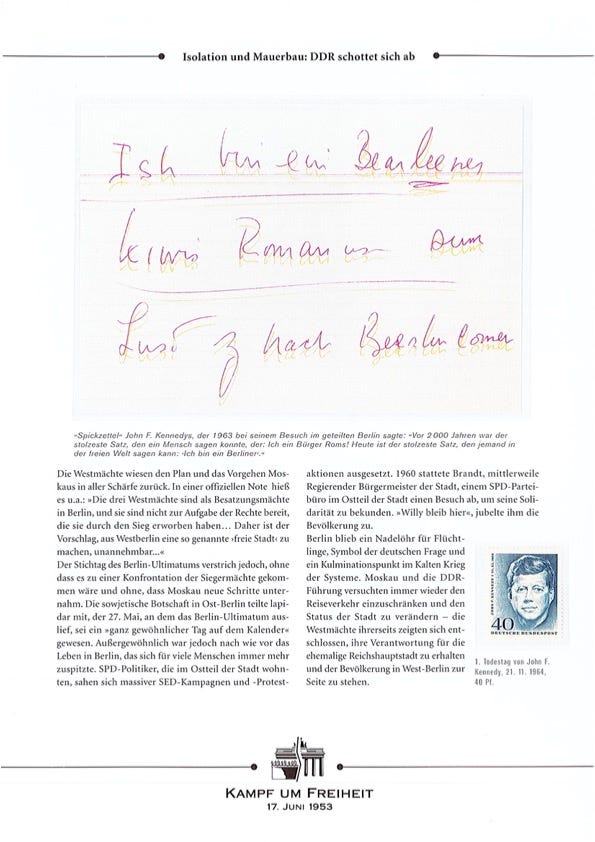 Isolation und Mauerbau: DDR schottet sich ab
Ish bin ein Bearleener
kiwis Romanus sum
Lust z nach Bearlin comen
»Spickzettel« John F. Kennedys, der 1963 bei seinem Besuch im geteilten Berlin sagte: »Vor 2000 Jahren war der
stolzeste Satz, den ein Mensch sagen konnte, der: Ich ein Bürger Roms! Heute ist der stolzeste Satz, den jemand in
der freien Welt sagen kann: ›Ich bin ein Berliner‹.«
Die Westmächte wiesen den Plan und das Vorgehen Mos-
kaus in aller Schärfe zurück. In einer offiziellen Note hieß
es u.a.: »Die drei Westmächte sind als Besatzungsmächte
in Berlin, und sie sind nicht zur Aufgabe der Rechte bereit,
die sie durch den Sieg erworben haben… Daher ist der
Vorschlag, aus Westberlin eine so genannte ›freie Stadt‹ zu
machen, unannehmbar...«
Der Stichtag des Berlin-Ultimatums verstrich jedoch, ohne
dass es zu einer Konfrontation der Siegermächte gekom-
men wäre und ohne, dass Moskau neue Schritte unter-
nahm. Die sowjetische Botschaft in Ost-Berlin teilte lapi-
dar mit, der 27. Mai, an dem das Berlin-Ultimatum aus-
lief, sei ein »ganz gewöhnlicher Tag auf dem Kalender«
gewesen. Außergewöhnlich war jedoch nach wie vor das
Leben in Berlin, das sich für viele Menschen immer mehr
zuspitzte. SPD-Politiker, die im Ostteil der Stadt wohn-
ten, sahen sich massiver SED-Kampagnen und -Protest-
aktionen ausgesetzt. 1960 stattete Brandt, mittlerweile
Regierender Bürgermeister der Stadt, einem SPD-Partei-
büro im Ostteil der Stadt einen Besuch ab, um seine Soli-
darität zu bekunden. »Willy bleib hier«, jubelte ihm die
Bevölkerung zu.
Berlin blieb ein Nadelöhr für Flücht-
linge, Symbol der deutschen Frage und
ein Kulminationspunkt im Kalten Krieg
der Systeme. Moskau und die DDR-
Führung versuchten immer wieder den
Reiseverkehr einzuschränken und den
Status der Stadt zu verändern – die
Westmächte ihrerseits zeigten sich ent-
schlossen, ihre Verantwortung für die
ehemalige Reichshauptstadt zu erhalten
und der Bevölkerung in West-Berlin zur
Seite zu stehen.
JOHN F. KENNEDY
40
DEUTSCHE BUNDESPOST
1. Todestag von John F.
Kennedy, 21. 11. 1964,
40 Pf.
KAMPF UM FREIHEIT
17. JUNI 1953